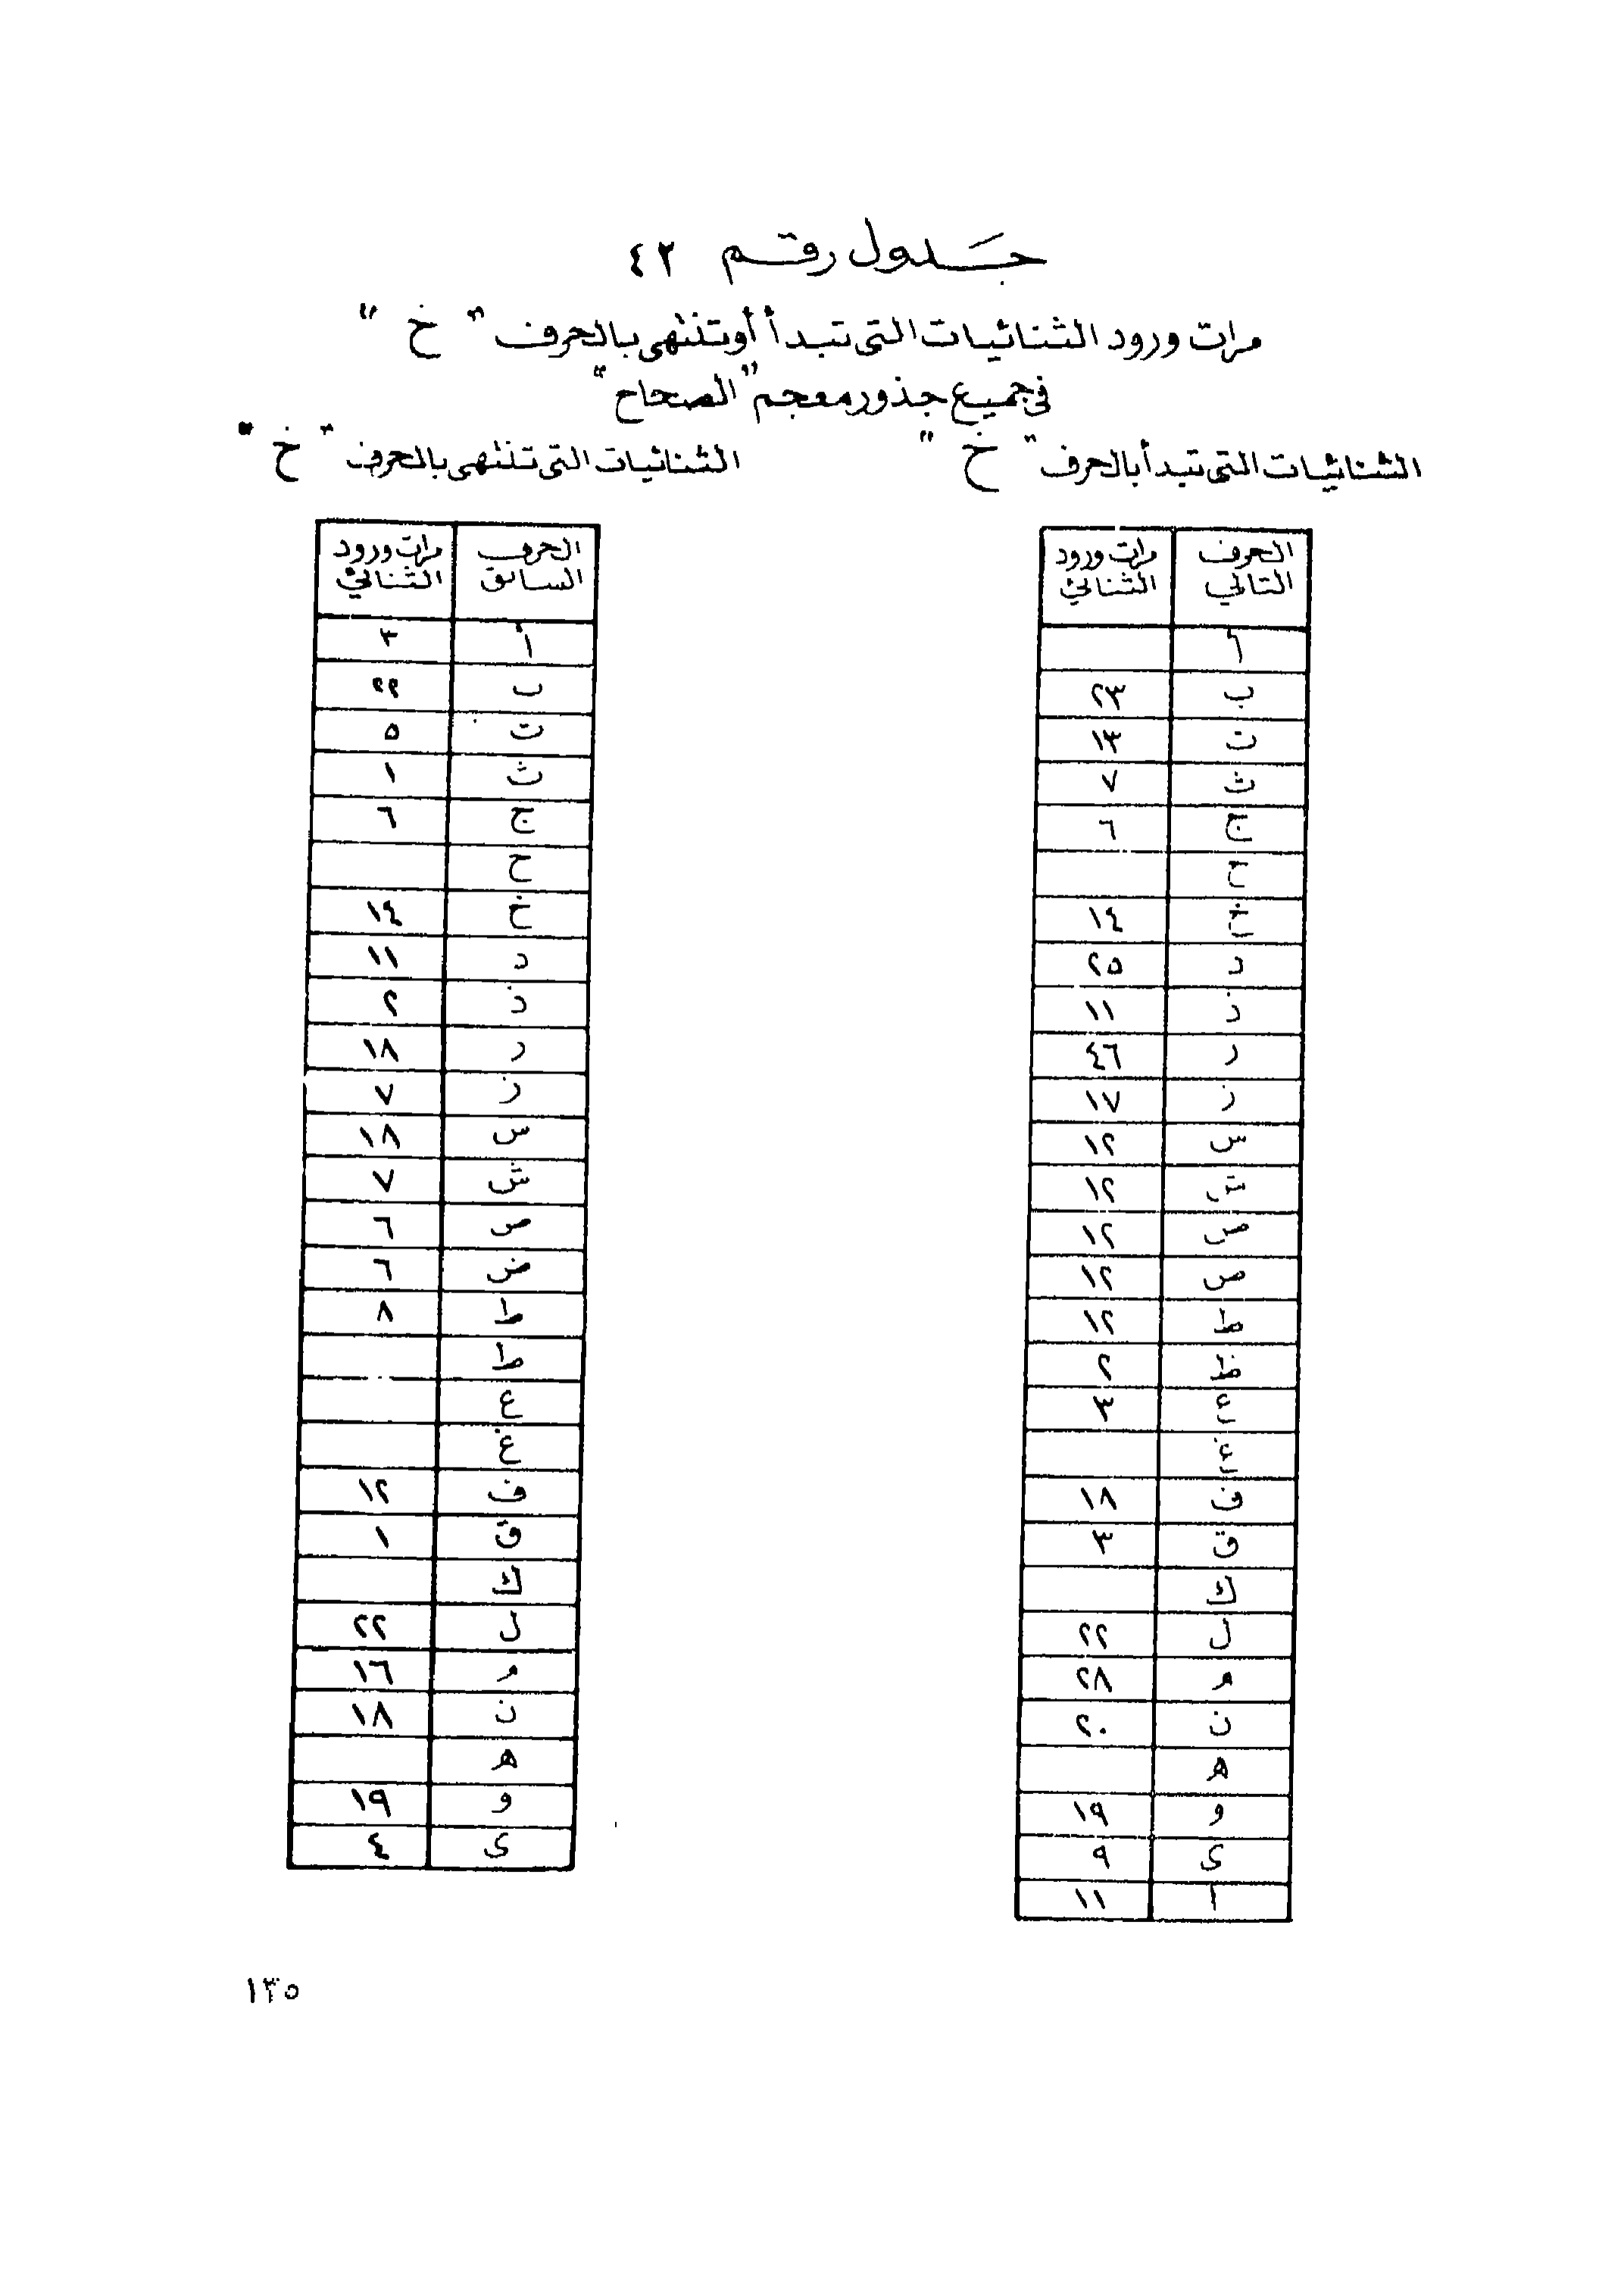 جدول رقم ٤٢
مرات ورود الثنائيات التى تبدأ أو تنتهى بالحرف " خ "
فى جميع جذور معجم "الصحاح"
الثنائيات التى تبدأ بالحرف " خ "
الحرف التالي | مرات ورود الثنائي
أ
ب ٢٣
ت ١٣
ث ٧
ج ٦
ح
خ ١٤
د ٢٥
ذ ١١
ر ٤٦
ز ١٧
س ١٢
ش ١٢
ص ١٢
ص ١٢
ط ١٢
ظ ٢
ع ٣
غ
ف ١٨
ق ٣
ك
ل ٢٢
م ٢٨
ن ٢٠
ه
و ١٩
ى ٩
ا ١١
الثنائيات التى تنتهى بالحرف " خ "
الحرف السابق | مرات ورود الثنائي
أ ٣
ب ٢٢
ت ٥
ث ١
ج ٦
ح
خ ١٤
د ١١
ذ ٢
ر ١٨
ز ٧
س ١٨
ش ٧
ص ٦
ض ٦
ط ٨
ط
ع
غ
ف ١٢
ق ١
ك
ل ٢٢
م ١٦
ن ١٨
ه
و ١٩
ى ٤
١٣٥